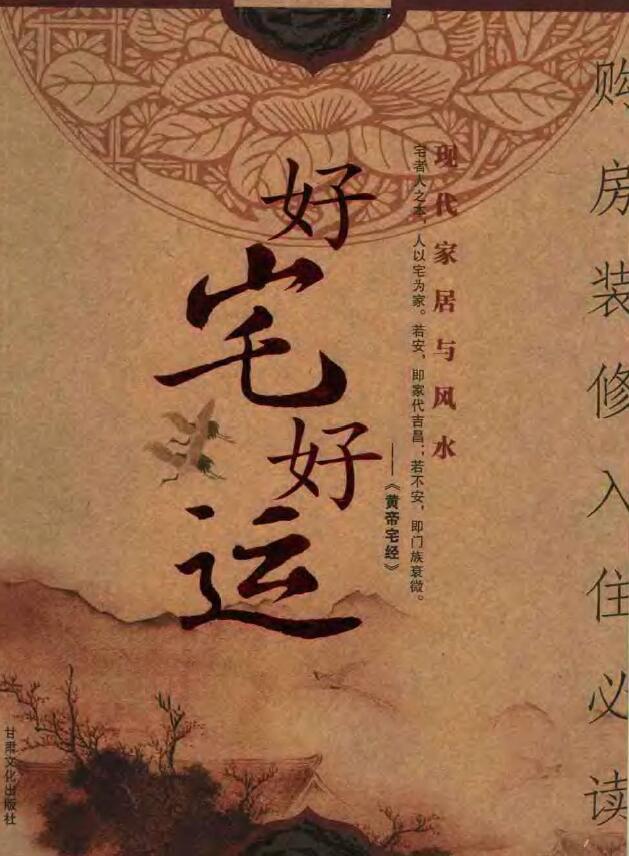 购房装修入住必读
现代家居与风水
宅者人之本，人以宅为家。若安，即家代吉昌；若不安，即门族衰微。
——《黄帝宅经》
好宅好运
甘肃文化出版社